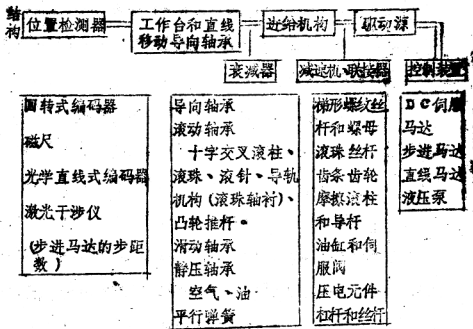 结构
位置检测器
工作台和直线移动导向轴承
进给机构
驱动源
衰减器
减速机、联接器
控制装置
回转式编码器
磁尺
光学直线式编码器
激光干涉仪
(步进马达的步距
数)
导向轴承
滚动轴承
十字交叉滚柱、
滚珠、滚针、导轨
机构(滚珠轴衬)、
凸轮推杆。
滑动轴承
静压轴承
空气、油
平行弹簧
梯形螺纹丝
杆和螺母
滚珠丝杆
齿条齿轮
摩擦滚柱
和导杆
油缸和伺
服阀
压电元件
杠杆和丝杆
DC伺服
马达
步进马达
直线马达
液压泵